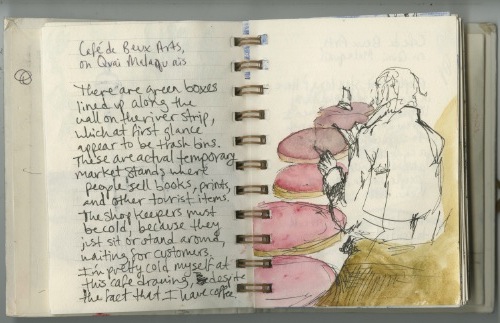 Café de Beux Arts,
on Quai Melaquais
There are green boxes
lined up along the
wall on the river strip,
which at first glance
appear to be trash bins.
These are actual temporary
market stands where
people sell books, prints,
and other tourist items.
The shop keepers must
be cold, because they
just sit or stand around,
waiting for customers.
I'm pretty cold myself at
this cafe drawing, despite
the fact that I have coffee.